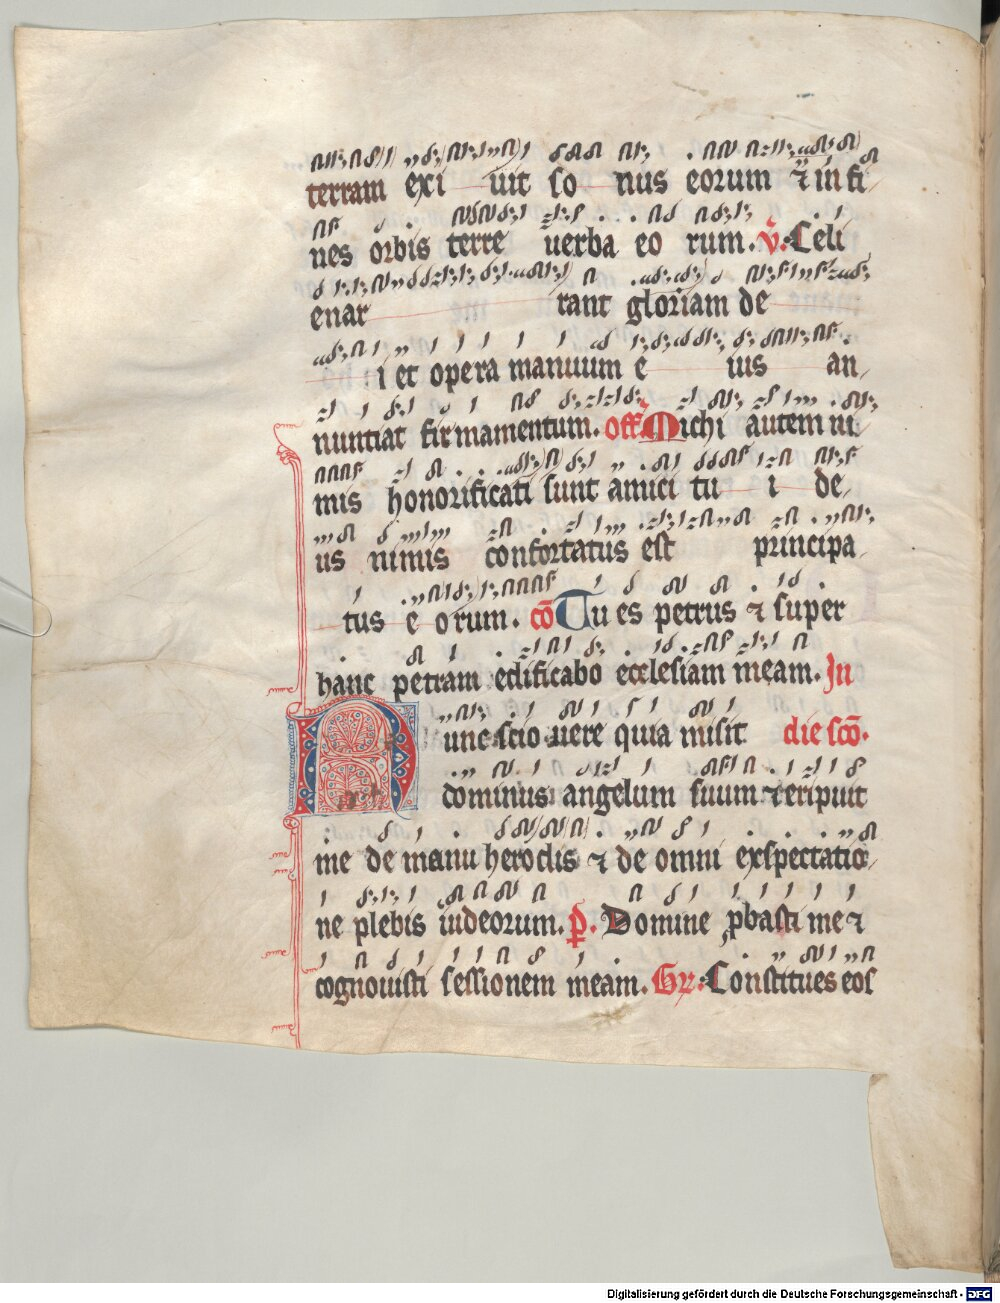 terram exi uit so nus eorum ⁊ in fi
nes orbis terre uerba eo rum. V̄. Celi
enar rant gloriam de
i et opera manuum e ius an
nuntiat firmamentum. off̄. Michi autem ni
mis honorificati sunt amici tu i de
us nimis confortatus est principa
tus e orum. cō Tu es petrus ⁊ super
hanc petram edificabo ecclesiam meam. In
Nunc scio uere quia misit die scō.
dominus angelum suum ⁊ eripuit
me de manu herodis ⁊ de omni exspectatio
ne plebis iudeorum. p̄. Domine ꝓbasti me ⁊
cognouisti sessionem meam. Gr̄. Constitues eos
Digitalisierung gefördert durch die Deutsche Forschungsgemeinschaft - DFG